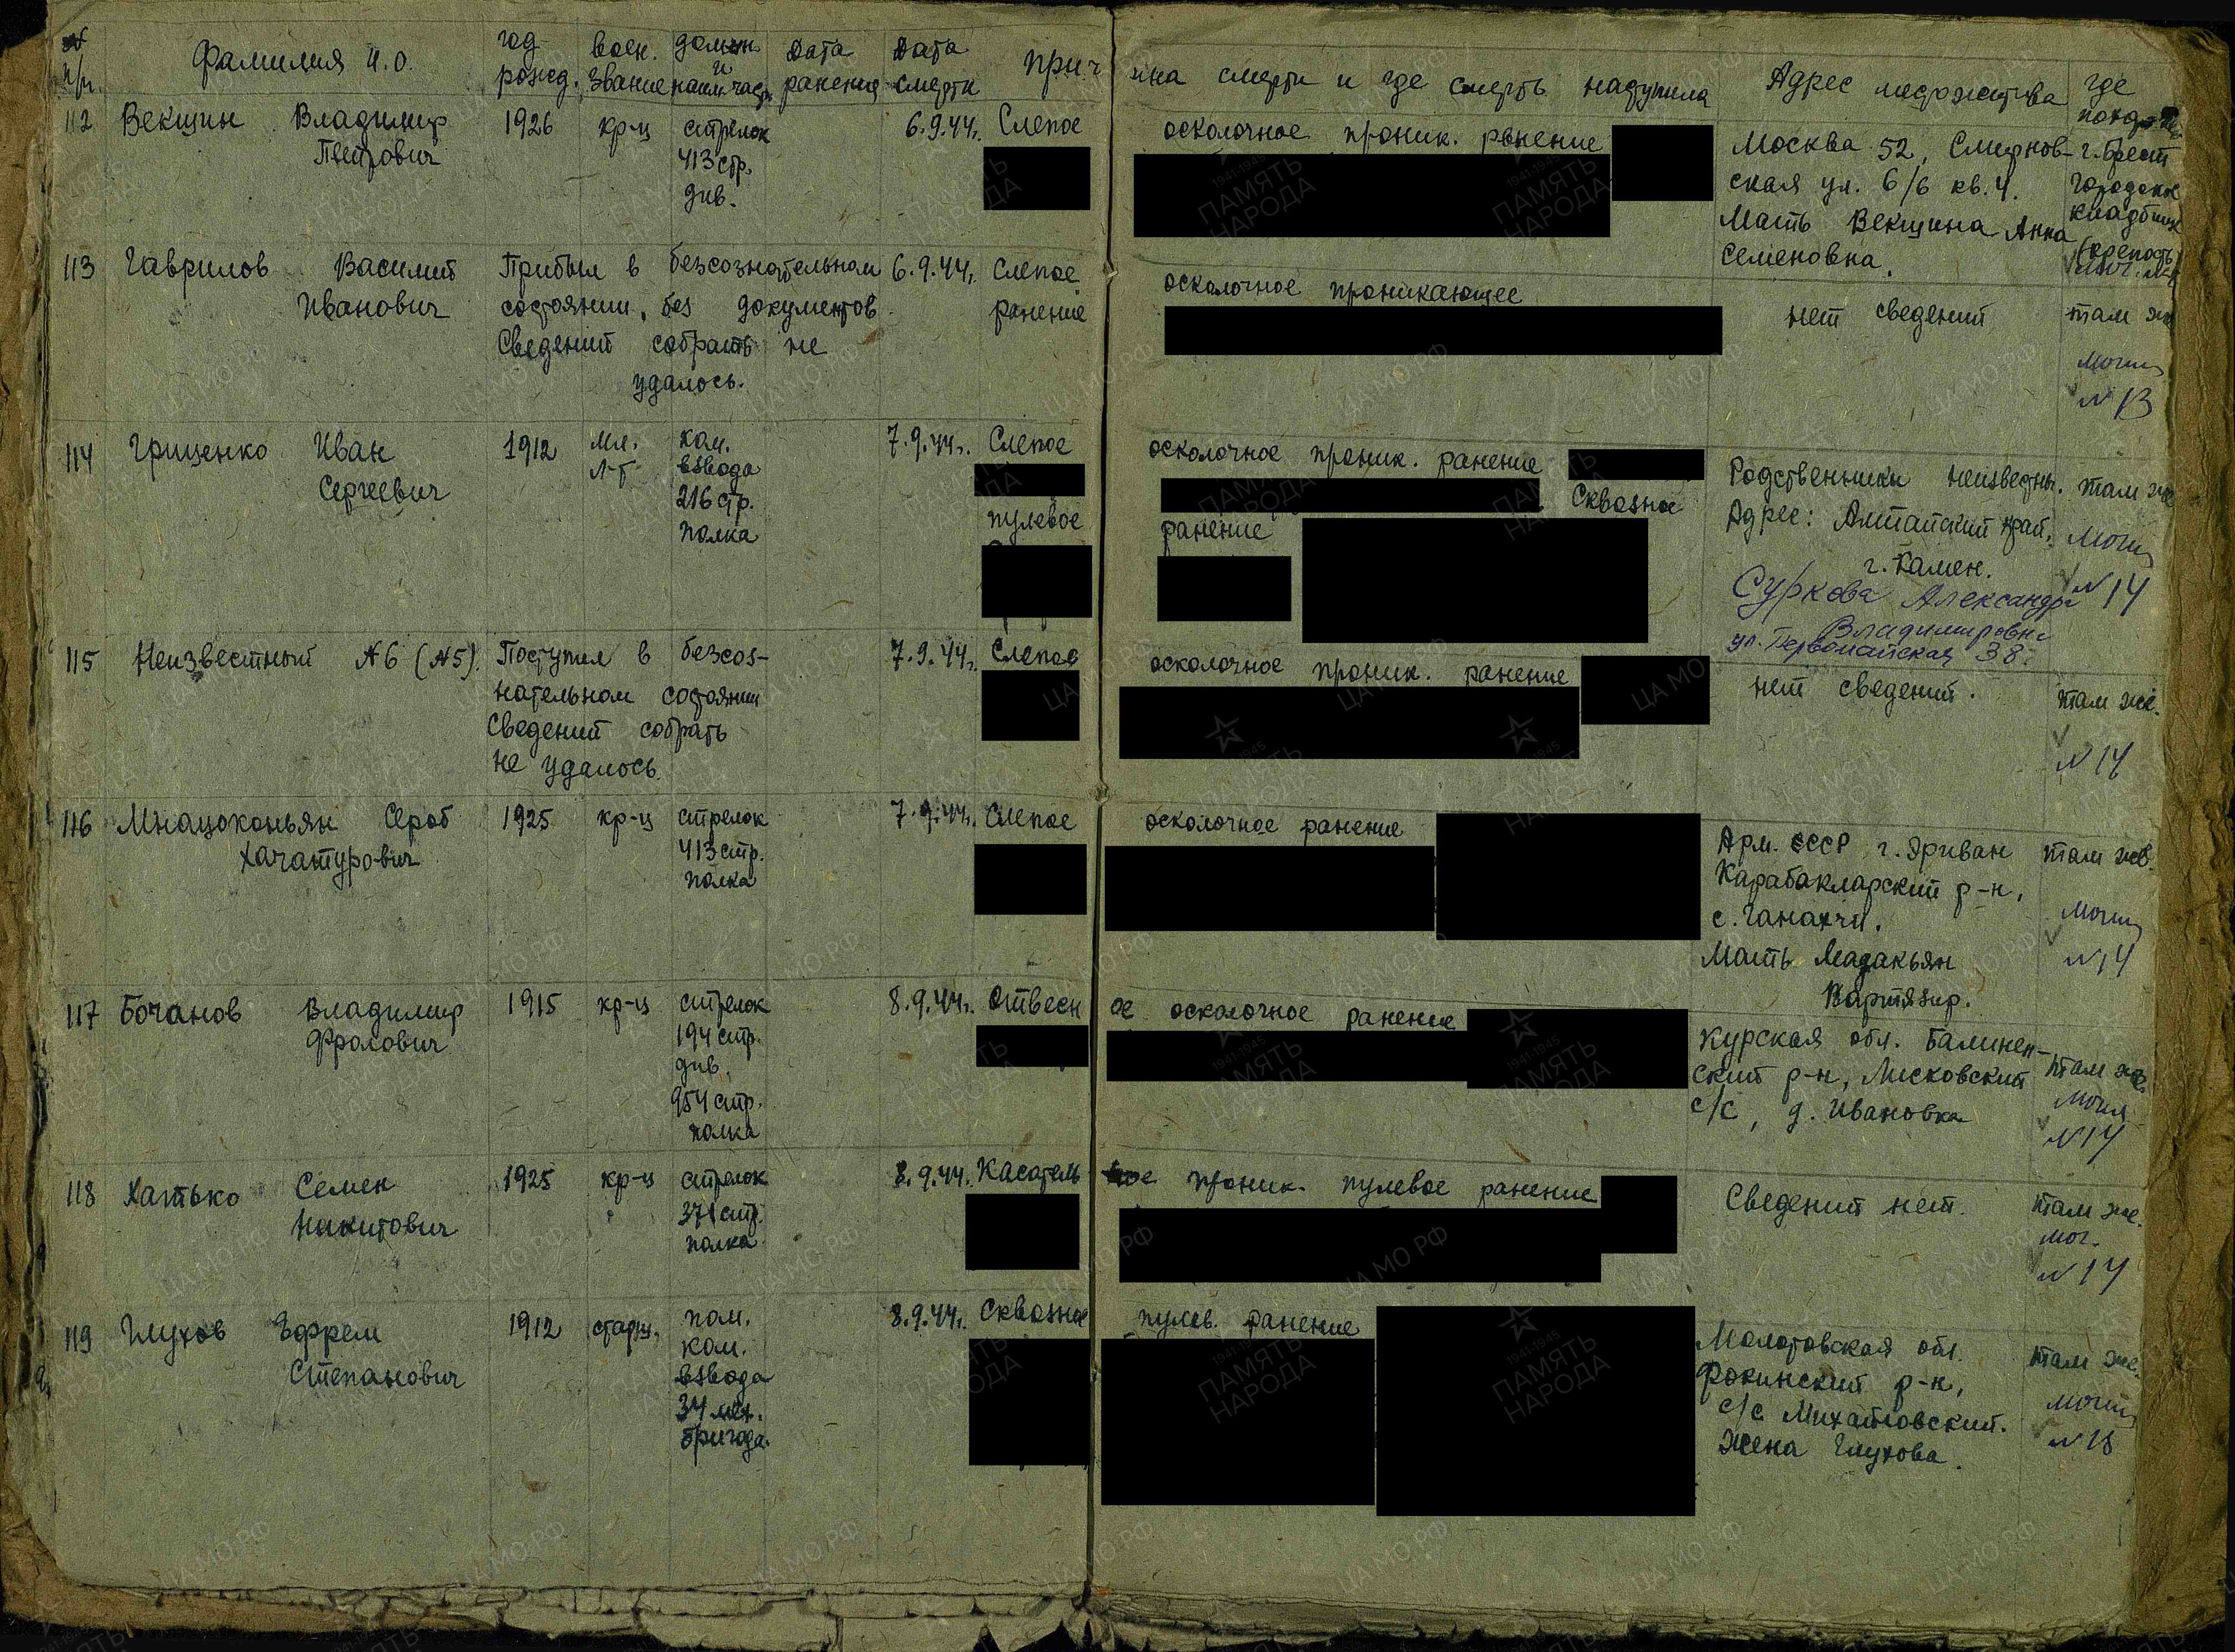 № п/п. Фамилия И.О. год рожд. воен. звание должн. и наим. части дата ранения дата смерти причина смерти и где смерть наступила Адрес местожительства где похор
112 Векшин Владимир 1926 кр-ц стрелок 6.9.44г. Слепое осколочное проник. ранение Москва 52, Смирнов- г. Брест
Петрович 413 стр. ская ул. 6/6 кв. 4. городское
див. Мать Векшина Анна кладбище
Семеновна. (крепость)
113 Гаврилов Василий Прибыл в безсознательном 6.9.44г. Слепое осколочное проникающее
Иванович состоянии, без документов. ранение нет сведений там же
Сведений собрать не могил
удалось. № 13
114 Гриценко Иван 1912 мл. ком. 7.9.44г. Слепое осколочное проник. ранение Родственники неизвестны. там же
Сергеевич л-т взвода Сквозное Адрес: Алтайский край, могил
216 стр. пулевое ранение г. Камен. № 14
полка Суркова Александра
Владимировна
ул. Первомайская 38.
115 Неизвестный №6 (№5). Поступил в безсоз- 7.9.44г. Слепое осколочное проник. ранение нет сведений. там же.
нательном состоянии № 14
Сведений собрать
не удалось.
116 Мнацоконьян Сероб 1925 кр-ц стрелок 7.9.44г. Слепое осколочное ранение Арм. СССР г. Эриван там же.
Хачатурович 413 стр. Карабакларский р-н, могил
полка с. Ганахчи. № 14
Мать Мадакьян
117 Бочанов Владимир 1915 кр-ц стрелок 8.9.44г. Отвесное осколочное ранение Курская обл. Балинен-
Фролович 194 стр. ский р-н, Лисковский там же.
див. с/с, д. Ивановка могил
954 стр. № 14
полка
118 Хатько Семен 1925 кр-ц стрелок 8.9.44г. Касательное проник. пулевое ранение Сведений нет. там же.
Никитович 371 стр. мог.
полка № 14
119 Глухов Эфрем 1912 старш. пом. 8.9.44г. Сквозное пулев. ранение Молотовская обл. там же.
Степанович ком. Фокинский р-н, могил
взвода с/с Михайловский. № 15
34 бригада. Жена Глухова.
ЦАМО.РФ
1941-1945
ПАМЯТЬ
НАРОДА